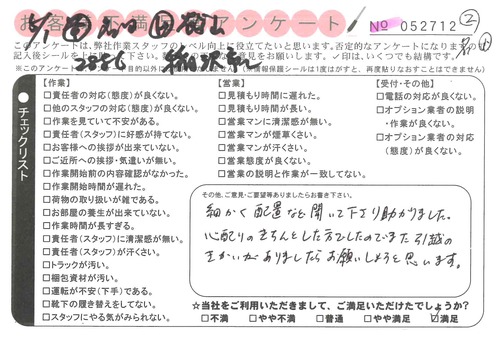 お客様 満足 アンケート
No 052712 ②
このアンケートは、弊社作業スタッフのレベル向上に役立てたいと思います。否定的なアンケートになりますので
チェックリスト
【作業】
□責任者の対応(態度)が良くない。
□他のスタッフの対応(態度)が良くない。
□作業を見ていて不安がある。
□責任者(スタッフ)に好感が持てない。
□お客様への挨拶が出来ていない。
□ご近所への挨拶・気遣いが無い。
□作業開始前の内容確認がなかった。
□作業開始時間が遅れた。
□荷物の取り扱いが雑である。
□お部屋の養生が出来ていない。
□作業時間が長すぎる。
□責任者(スタッフ)に清潔感が無い。
□責任者(スタッフ)が汗くさい。
□トラックが汚い。
□梱包資材が汚い。
□運転が不安(下手)である。
□靴下の履き替えをしてない。
□スタッフにやる気がみられない。
【営業】
□見積もり時間に遅れた。
□見積もり時間が長い。
□営業マンに清潔感が無い。
□営業マンが煙草くさい。
□営業マンが汗くさい。
□営業態度が良くない。
□営業の説明と作業が一致してない。
【受付・その他】
□電話の対応が良くない。
□オプション業者の説明
・作業が良くない。
□オプション業者の対応
(態度)が良くない。
その他、ご意見・ご要望等ありましたらお書き下さい。
細かく配置など聞いて下さり助かりました。
心配りのきちんとした方でしたのでまた引越の
きかいがありましたらお願いしようと思います。
☆当社をご利用いただきまして、ご満足いただけたでしょうか?
□不満 □やや不満 □普通 □やや満足 ☑満足